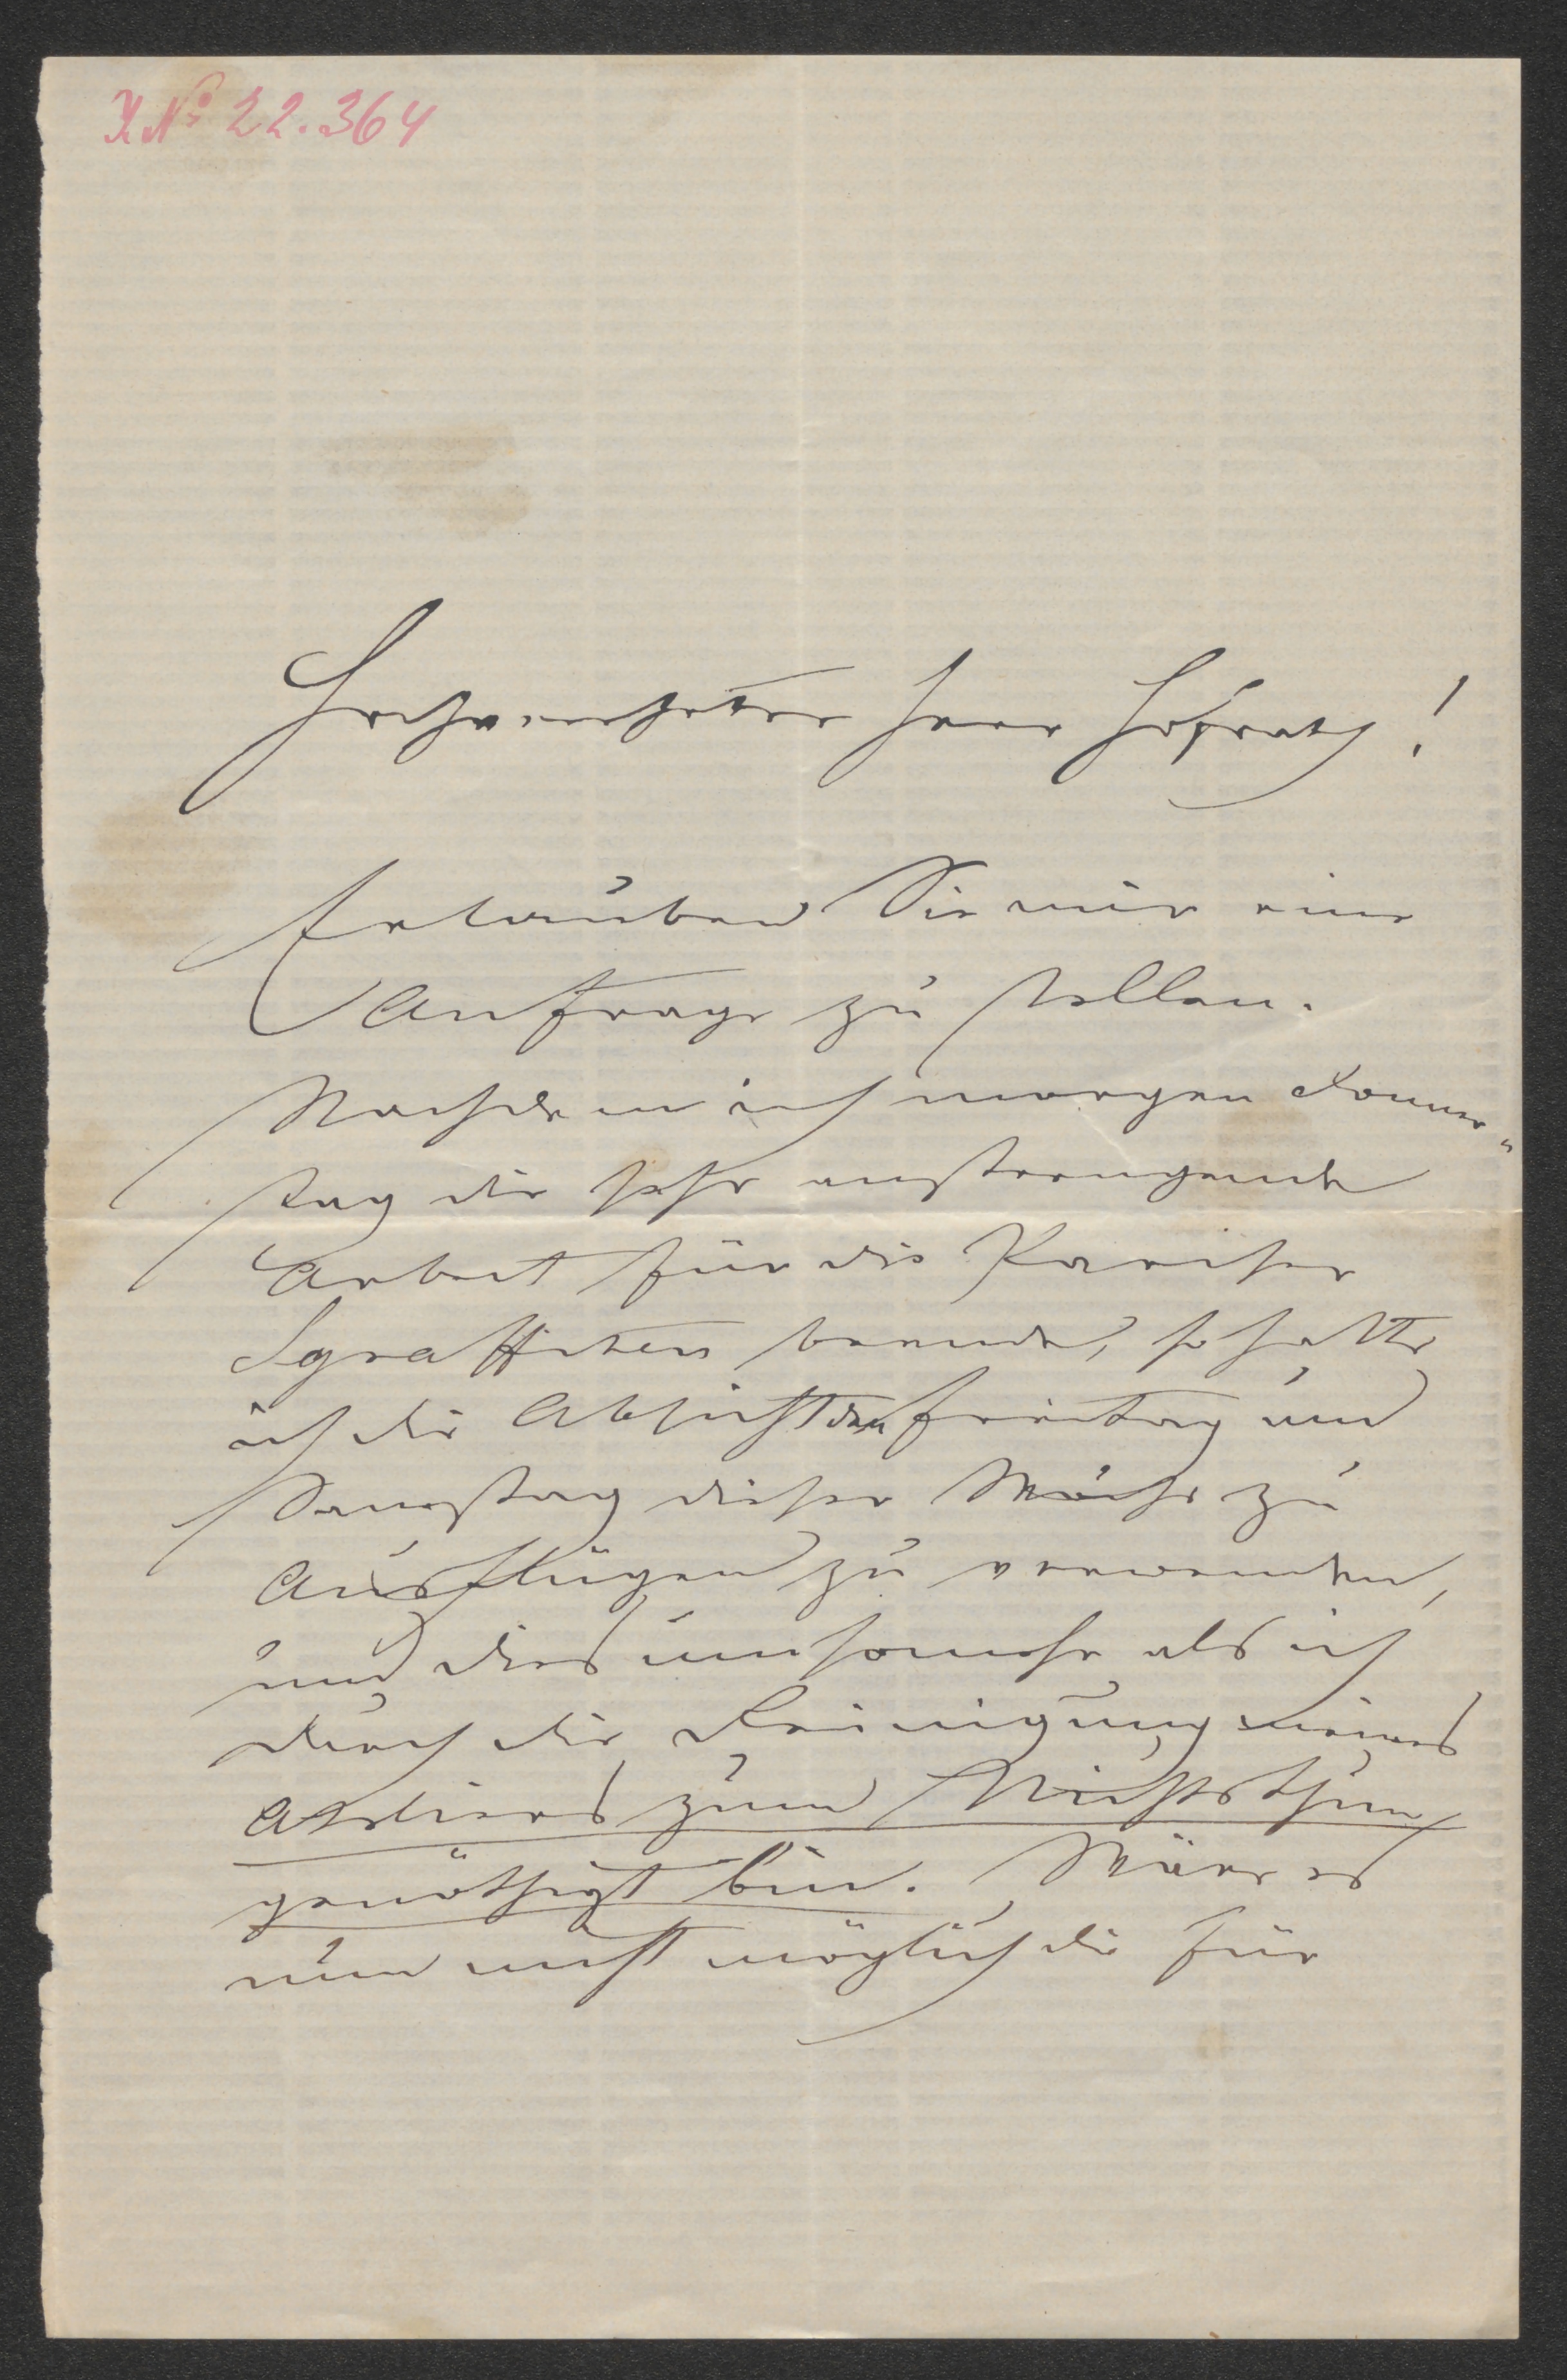 I.N. 22.364
Hochverehrter Herr Hofrath!
Erlauben Sie mir eine
Anfrage zu stellen.
Nachdem ich morgen Donners-
tag die sehr anstrengende
Arbeit für die Pariser
Sgraffiten beende, so hatte
ich die Absicht den Freitag und
Samstag dieser Woche zu
Ausflügen zu verwenden,
und dies umsomehr als ich
durch die Reinigung meines
Ateliers zum Nichtsthun
genöthigt bin. Wäre es
nun nicht möglich die für